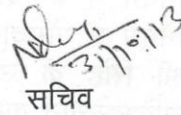 31/10/13
सचिव